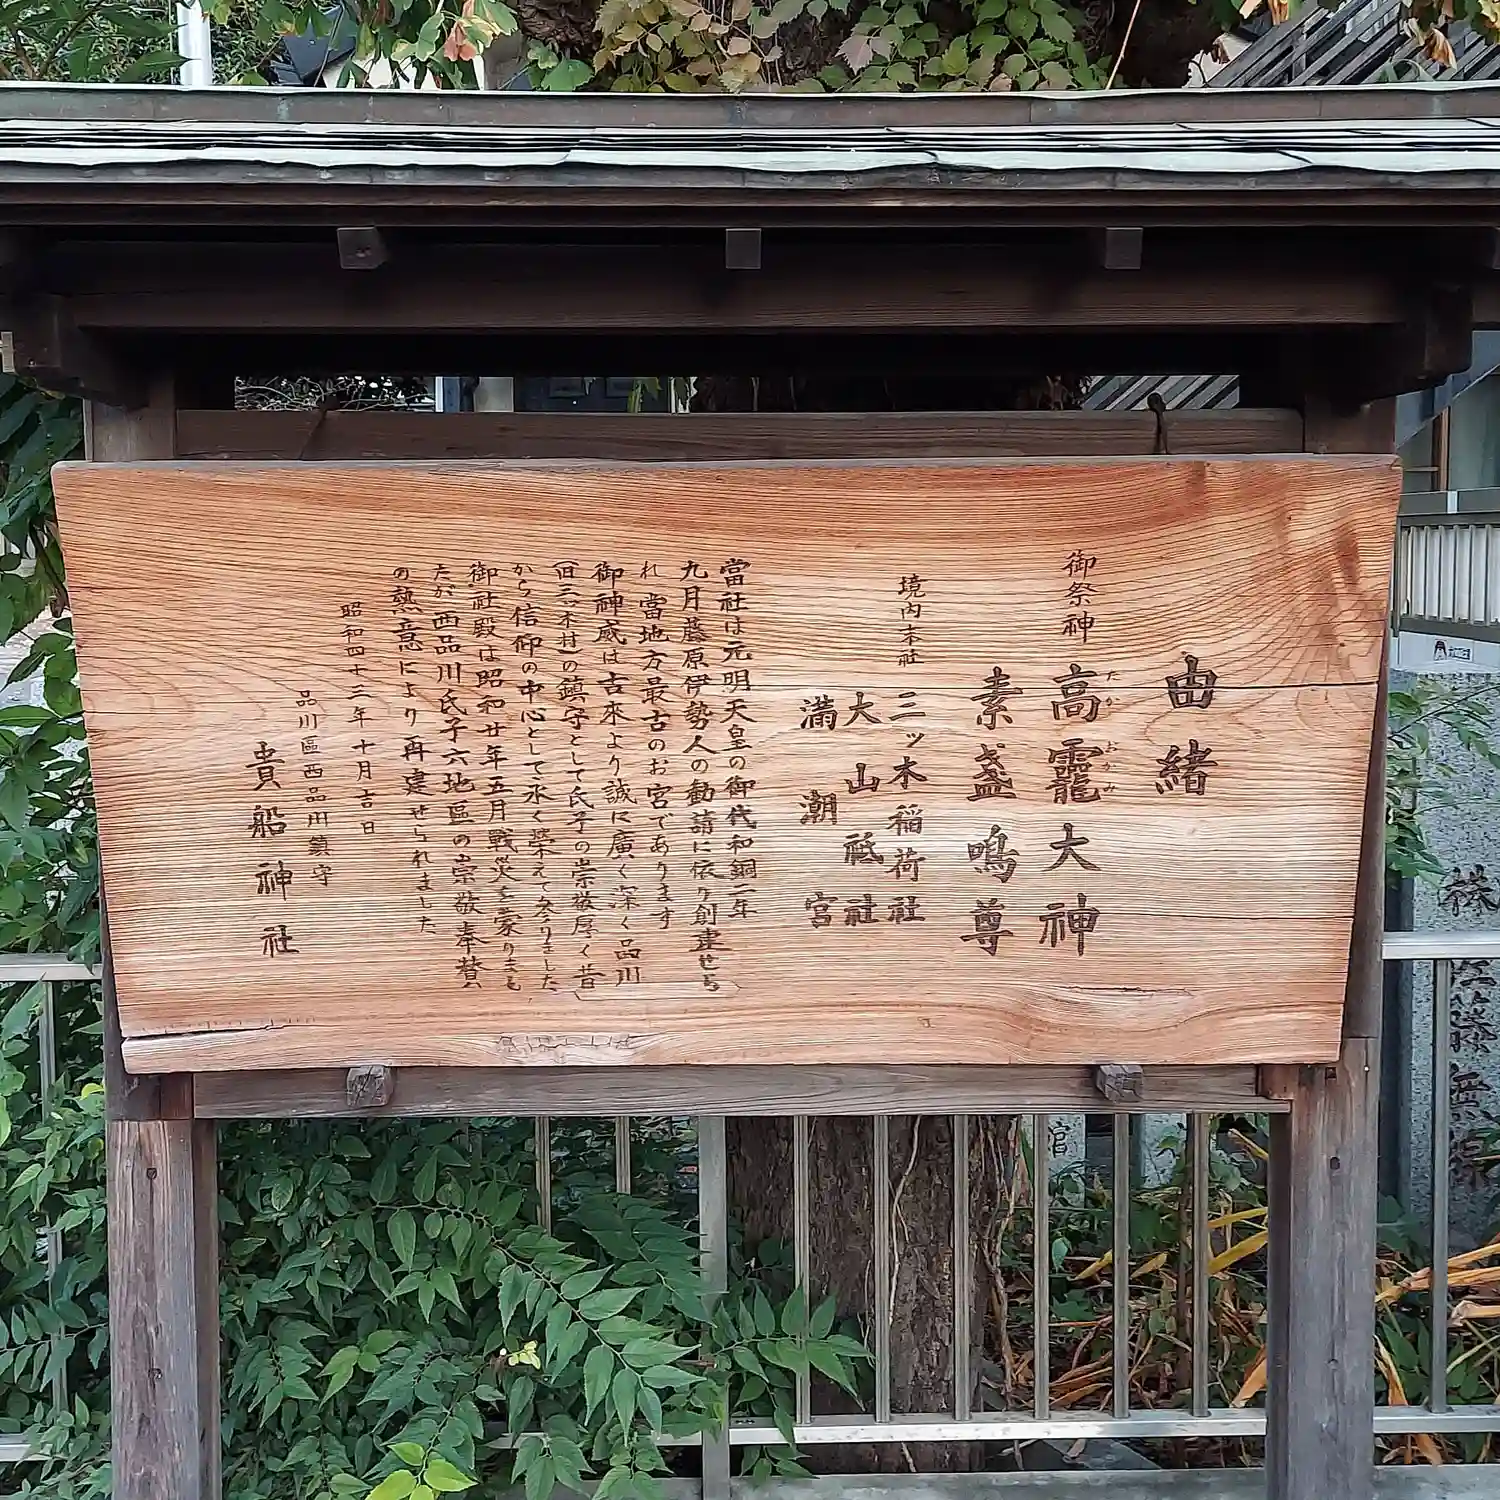 由緒
御祭神 高龗大神
たか おかみ
素盞鳴尊
境内末社 三ッ木稲荷社
大山祗社
満潮宮
當社は元明天皇の御代和銅二年
九月藤原伊勢人の勧請に依り創建せら
れ當地方最古のお宮であります
御神威は古來より誠に廣く深く品川
(旧三ッ木村)の鎮守として氏子の崇敬厚く昔
から信仰の中心として永く榮えて参りました
御社殿は昭和廿年五月戦災を蒙りまし
たが西品川氏子六地區の崇敬奉賛
の熱意により再建せられました
昭和四十三年十月吉日
品川區西品川鎮守
貴船神社